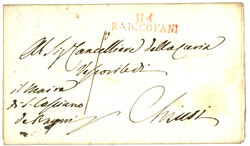 114
RADICOFANI
Al Sig Cancelliere della Curia
Vescovile di
il Maire
di S. Casciano
de Bagni
Chiusi